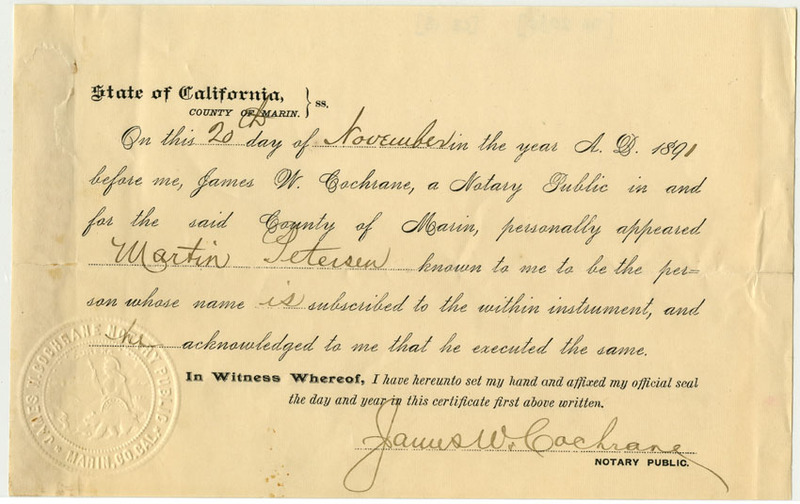 State of California,
COUNTY OF MARIN. } ss.
On this 20th day of November in the year A. D. 1891
before me, James W. Cochrane, a Notary Public in and
for the said County of Marin, personally appeared
Martin Petersen known to me to be the per=
son whose name is subscribed to the within instrument, and
he acknowledged to me that he executed the same.
In Witness Whereof, I have hereunto set my hand and affixed my official seal
the day and year in this certificate first above written.
James W. Cochrane
NOTARY PUBLIC.
JAMES W. COCHRANE NOTARY PUBLIC
MARIN, CO. CAL.